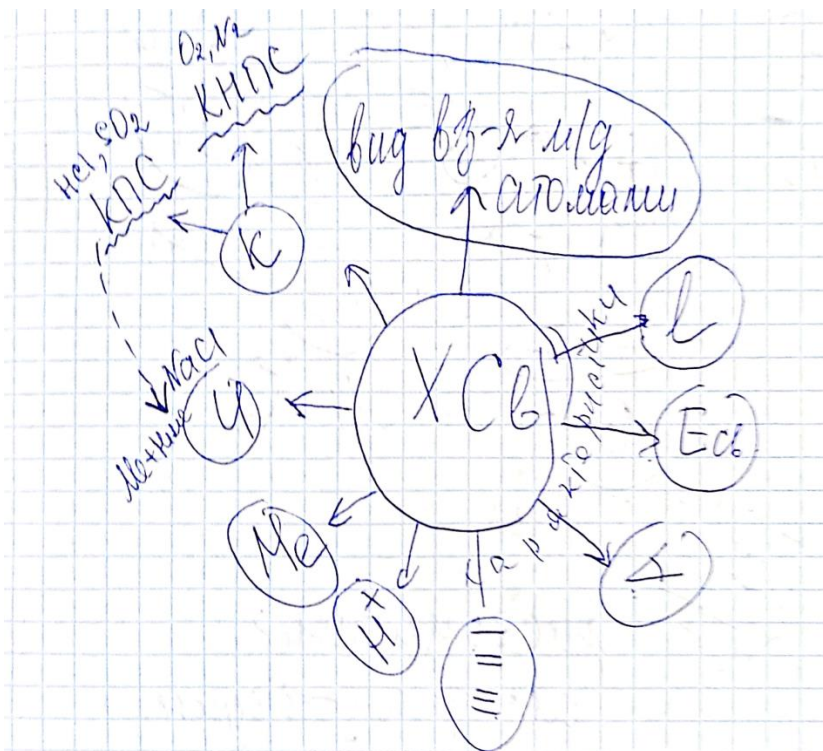 O2, N2
КНПС
HCl, SO2
КПС
К
вид вз-я м/д
атомами
ХСв
характеристики
l
Есв
∠
NaCl
И
Ме+Нме
Ме
H+
I
II
III